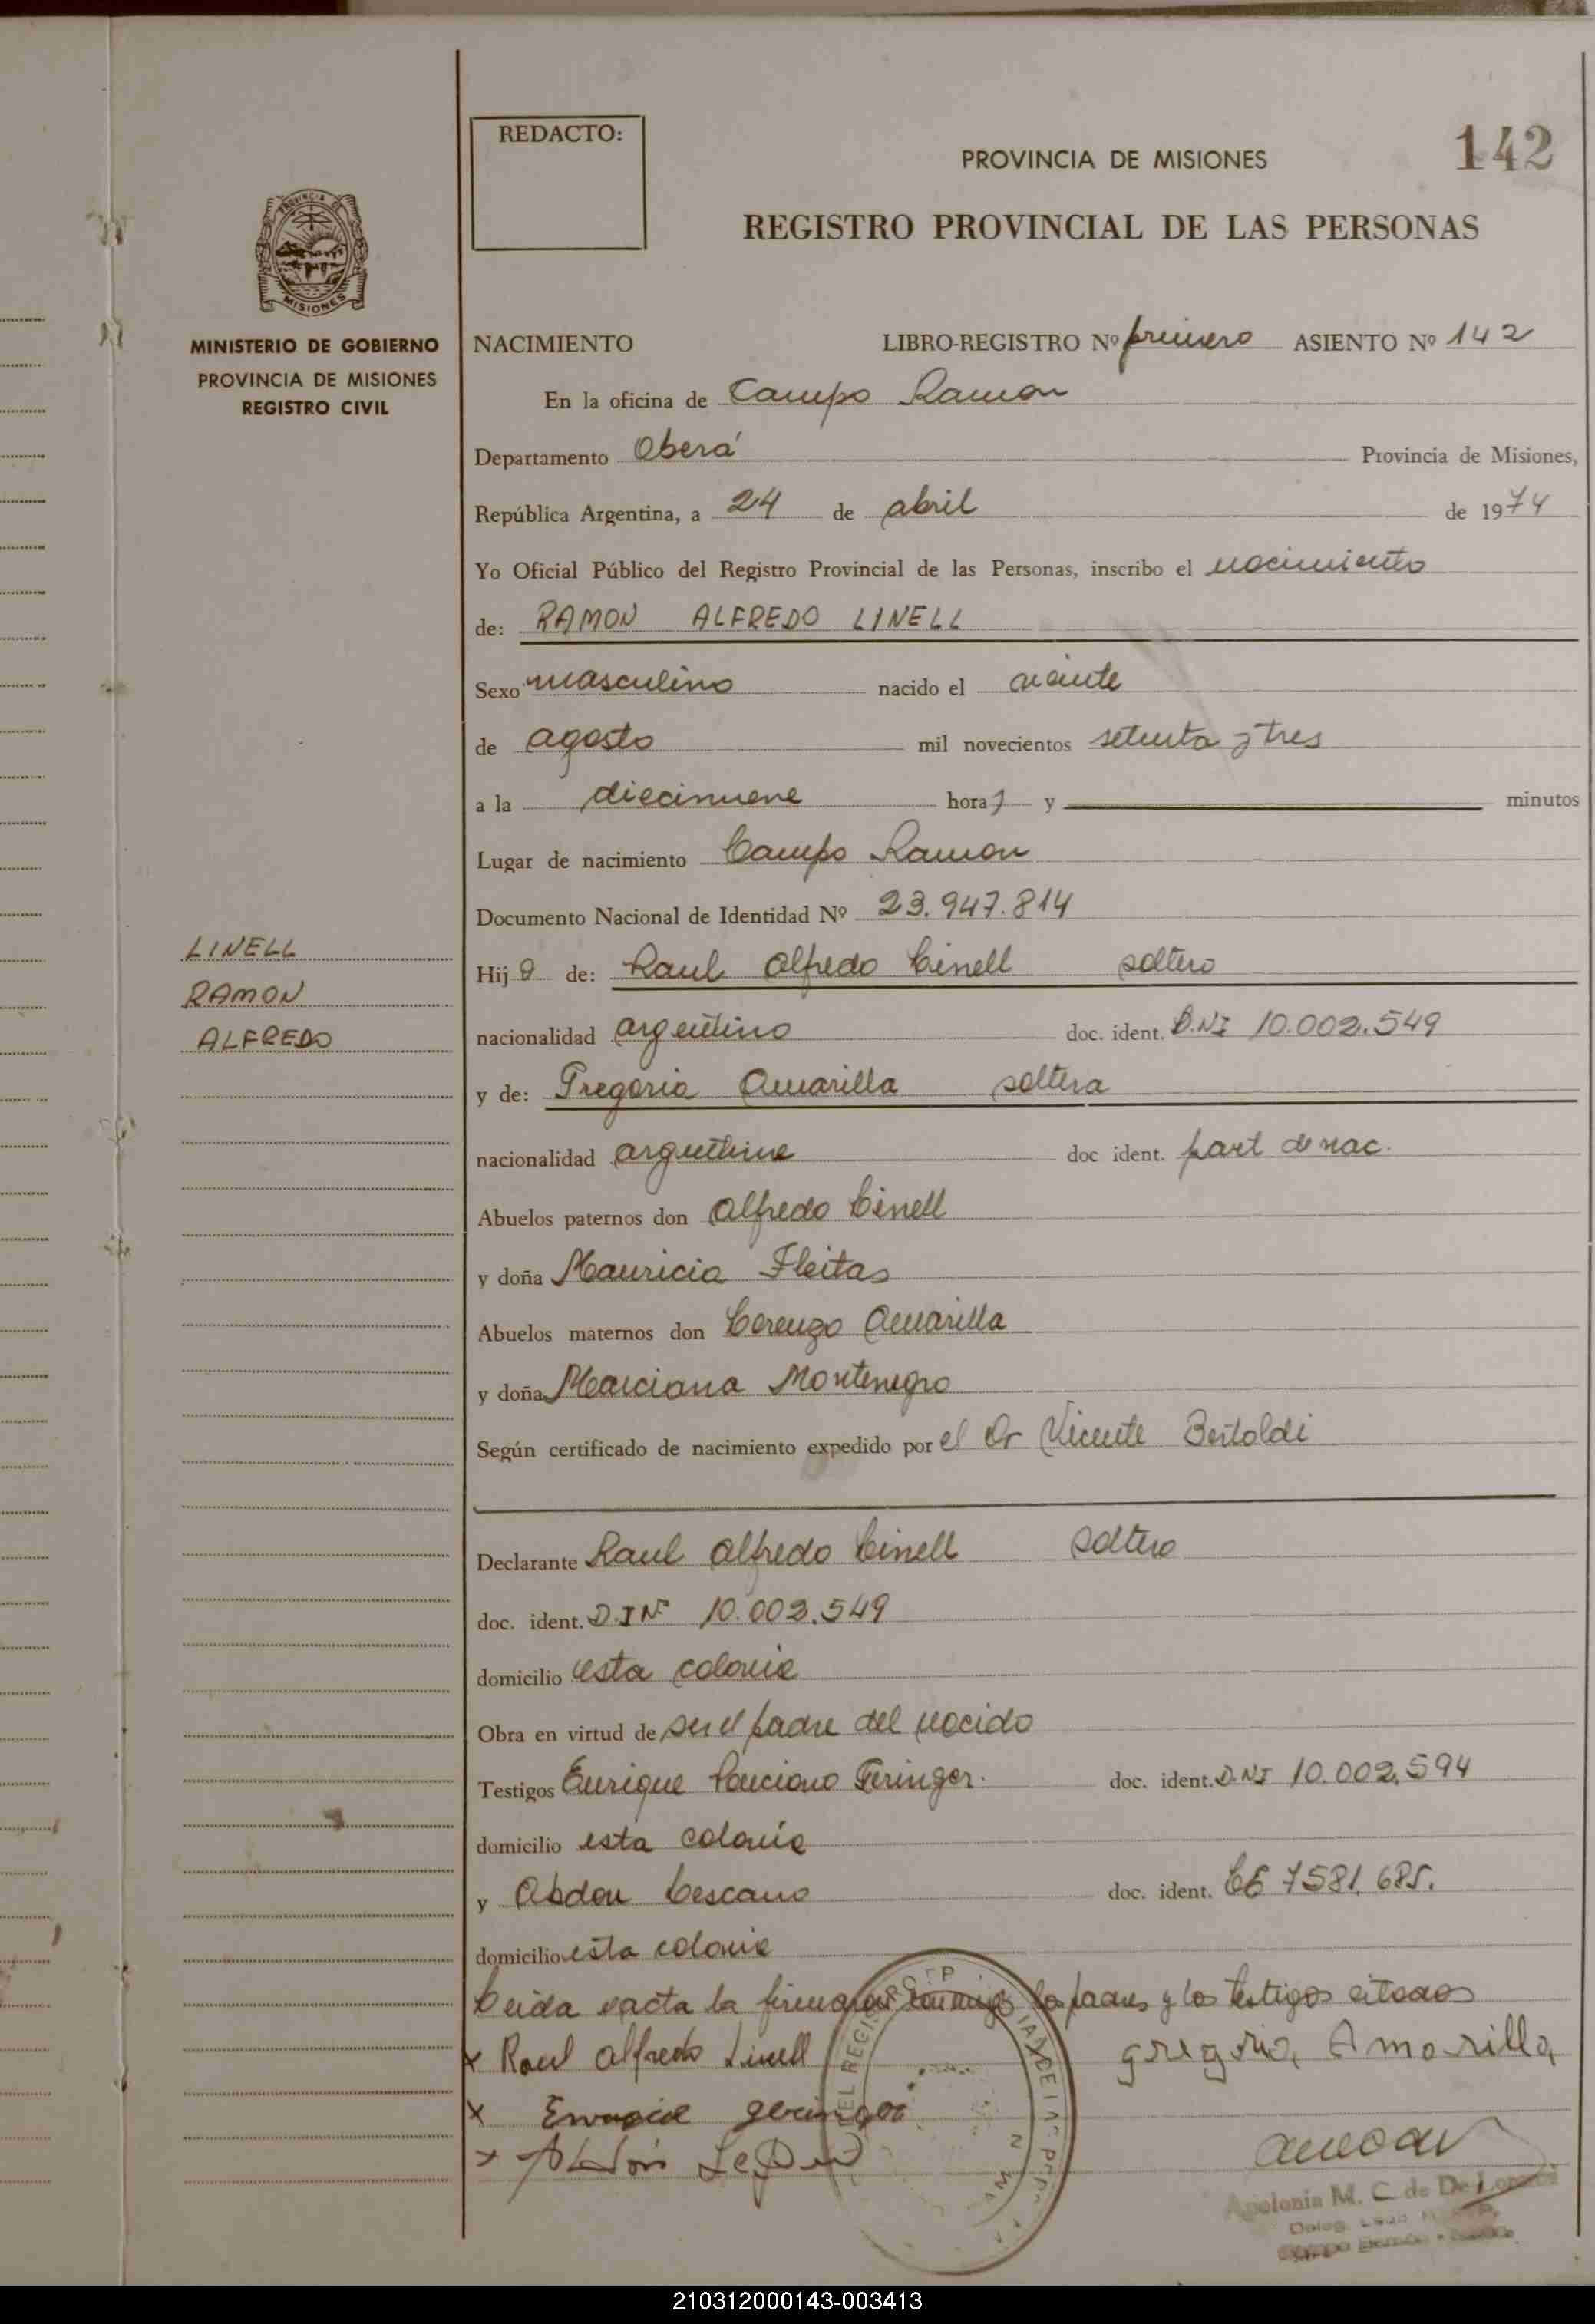 REDACTO:
142
PROVINCIA DE MISIONES
REGISTRO PROVINCIAL DE LAS PERSONAS
PROVINCIA DE
MISIONES
MINISTERIO DE GOBIERNO
PROVINCIA DE MISIONES
REGISTRO CIVIL
NACIMIENTO LIBRO-REGISTRO Nº primero ASIENTO Nº 142
En la oficina de Campo Ramon
Departamento Oberá Provincia de Misiones,
República Argentina, a 24 de abril de 1974
Yo Oficial Público del Registro Provincial de las Personas, inscribo el nacimiento
de: RAMON ALFREDO LINELL
Sexo masculino nacido el veinte
de agosto mil novecientos setenta y tres
a la diecinueve horas y minutos
Lugar de nacimiento Campo Ramon
Documento Nacional de Identidad Nº 23.947.814
LINELL
RAMON
ALFREDO
Hijo de: Raul Alfredo Linell soltero
nacionalidad argentino doc. ident. D.NI 10.002.549
y de: Gregoria Amarilla soltera
nacionalidad argentina doc ident. part de nac.
Abuelos paternos don Alfredo Linell
y doña Mauricia Fleitas
Abuelos maternos don Lorenzo Amarilla
y doña Marciana Montenegro
Según certificado de nacimiento expedido por el Dr Vicente Bertoldi
Declarante Raul Alfredo Linell soltero
doc. ident. D.I Nº 10.002.549
domicilio esta colonia
Obra en virtud de ser el padre del nacido
Testigos Enrique Ponciano Geringer. doc. ident. D.NI 10.002.594
domicilio esta colonia
y Abdon Lescano doc. ident. LE 7581.685.
domicilio esta colonia
Leida acta la firmaran conmigo los padres y los testigos citados
x Raul Alfredo Linell gregoria Amarilla
x geringer
x Abdón
Apolonia M. C. de De
210312000143-003413